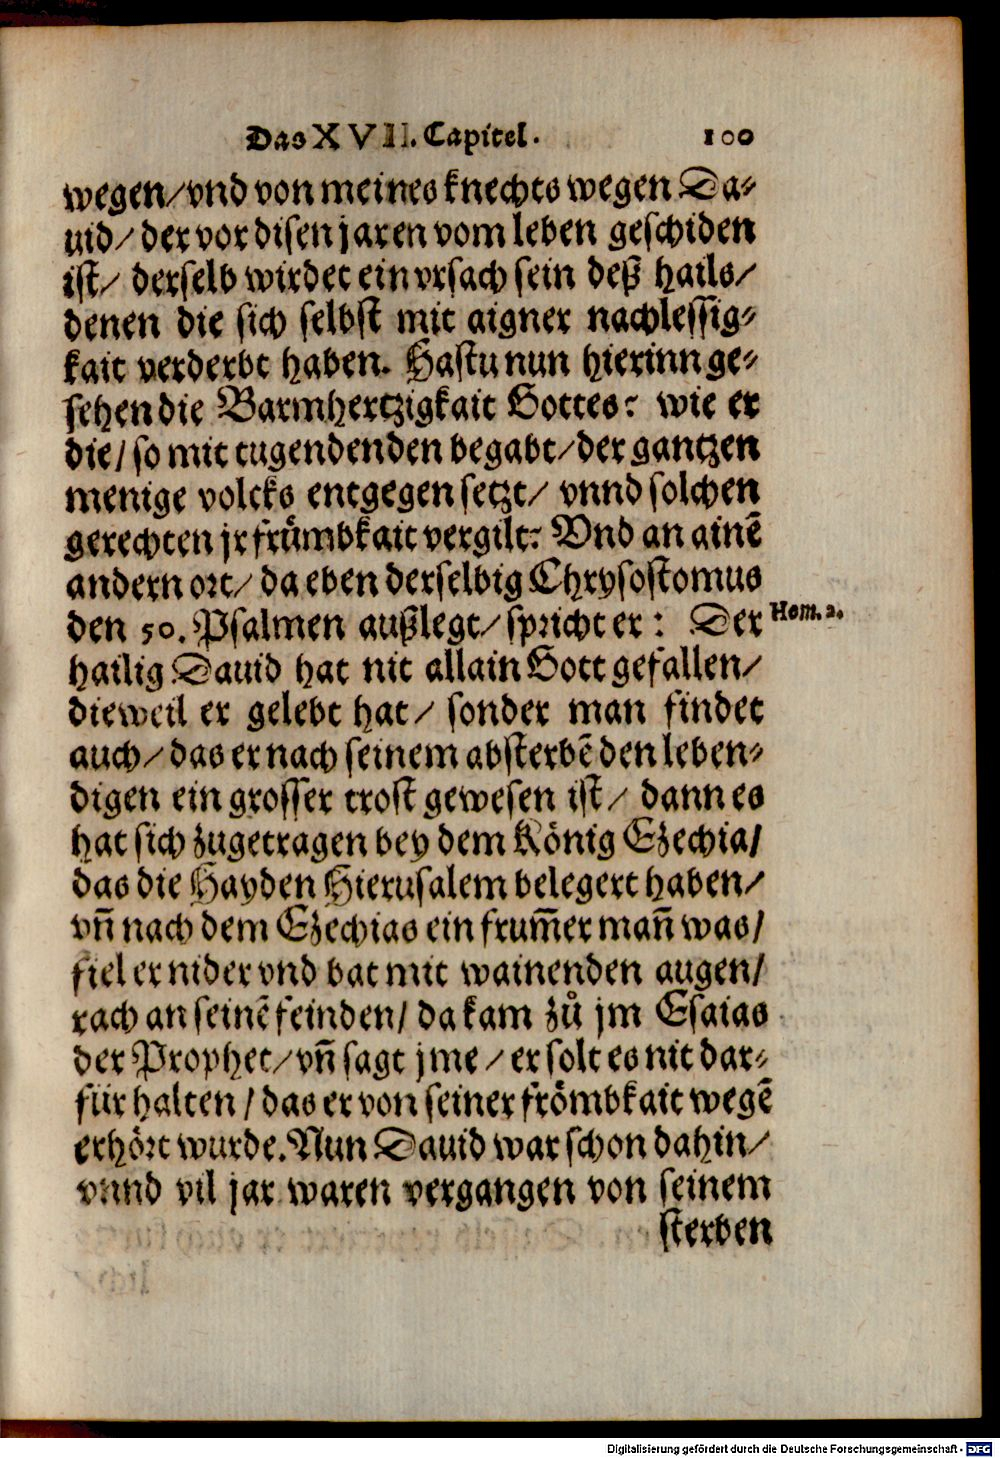 Das XVII. Capitel. 100
wegen/vnd von meines knechts wegen Da⸗
uid/ der vor disen jaren vom leben geschiden
ist/ derselb wirdet ein vrsach sein deß hails/
denen die sich selbst mit aigner nachlessig⸗
kait verderbt haben. Hastu nun hierinn ge⸗
sehen die Barmhertzigkait Gottes: wie er
die/ so mit tugendenden begabt/ der gantzen
menige volcks entgegen setzt/ vnnd solchen
gerechten jr frümbkait vergilt: Vnd an ainẽ
andern ort/ da eben derselbig Chrysostomus
den 50. Psalmen außlegt/ spricht er: Der
Hom. 2.
hailig Dauid hat nit allain Gott gefallen/
dieweil er gelebt hat/ sonder man findet
auch/ das er nach seinem absterbẽ den leben⸗
digen ein grosser trost gewesen ist/ dann es
hat sich zugetragen bey dem König Ezechia/
das die Hayden Hierusalem belegert haben/
vñ nach dem Ezechias ein frum̃er mañ was/
fiel er nider vnd bat mit wainenden augen/
rach an seinẽ feinden/ da kam zů jm Esaias
der Prophet/ vñ sagt jme/ er solt es nit dar⸗
für halten/ das er von seiner frömbkait wegẽ
erhört wurde. Nun Dauid war schon dahin/
vnnd vil jar waren vergangen von seinem
sterben
Digitalisierung gefördert durch die Deutsche Forschungsgemeinschaft - DFG